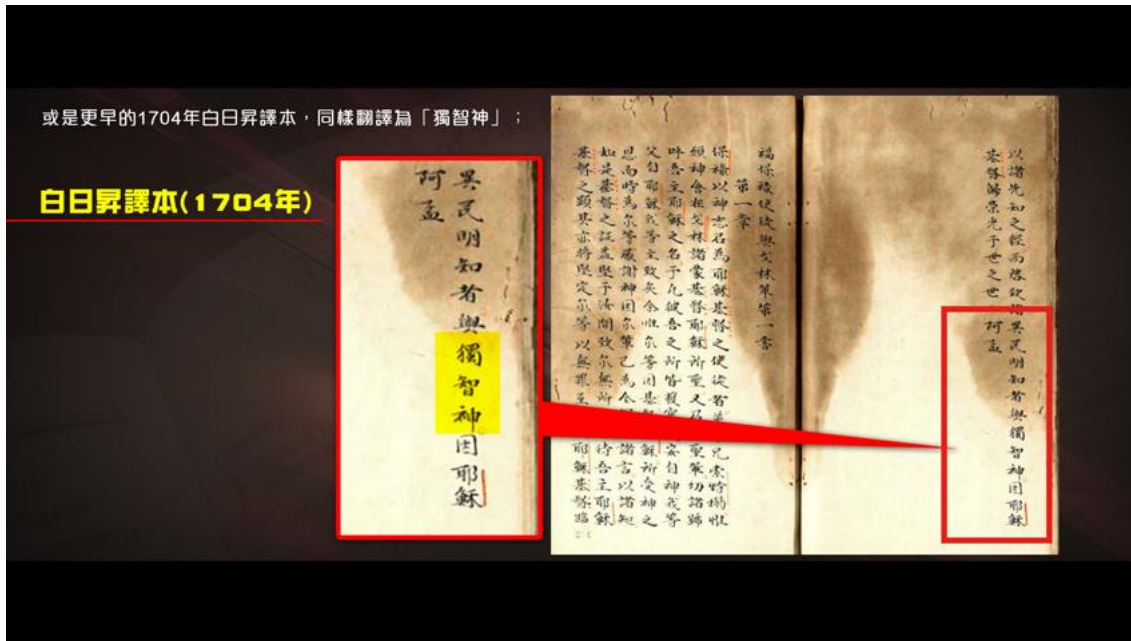 或是更早的1704年白日昇譯本，同樣翻譯為「獨智神」；
白日昇譯本(1704年)
異民明知者與獨智神因耶穌
阿孟
以諸先知之經而啓訟諸異民明知者與獨智神因耶穌
基督歸榮光于世之世 阿孟
福保祿使徒與戈林篤第一書
第一章
保祿以神志召為耶穌基督之使徒者
兄索特搦
煩神會在戈林諸蒙基督耶穌所聖又
呼吾主耶穌之名于凡彼吾之所皆獲
安自神我等
父自耶穌我等主致矣余惟尔等因基
穌所受神之
恩而時為尔等感謝神因尔等已為
諸言以諸知
如是基督之証盖堅于汝間致尔無所
待吾主耶穌
基督之顯其亦将堅定尔等以無罪至
耶穌基督臨